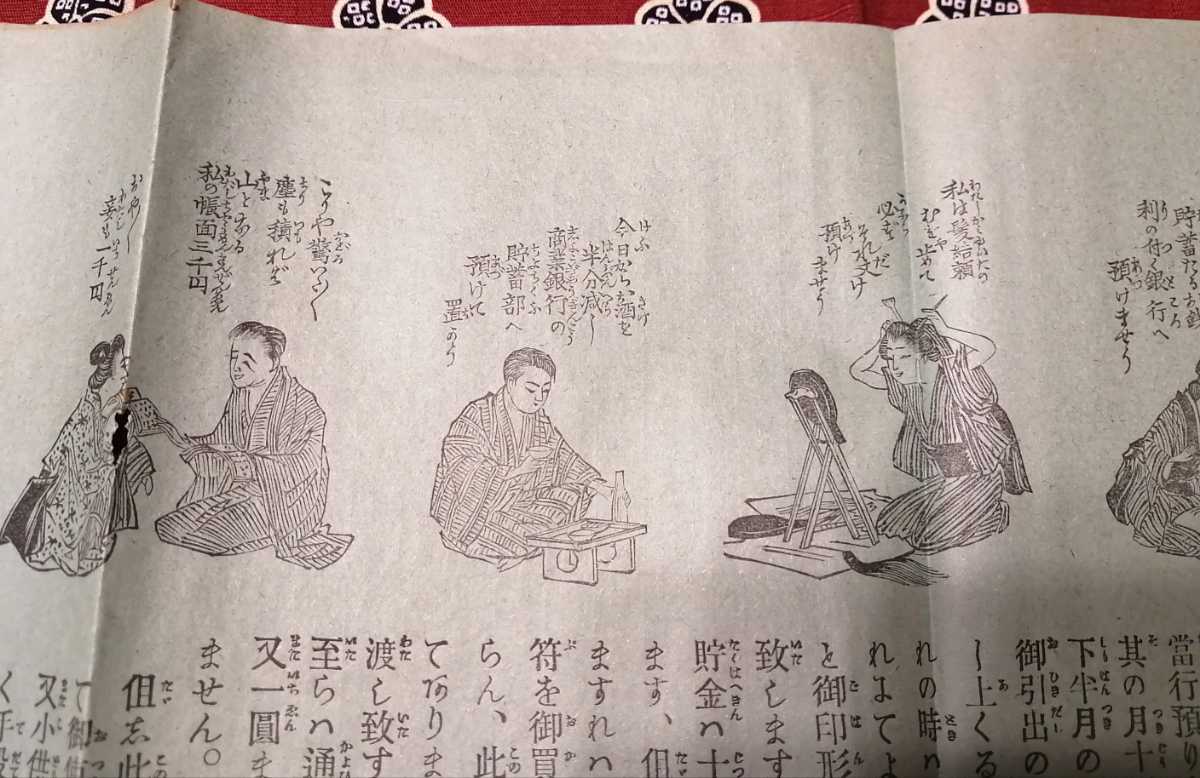 貯蓄
利の付く銀行へ
預けませう
私は髪結賴
むを止めて
必ず
それ丈け
預け
ませう
今日からお酒を
半分減し
商業銀行の
貯蓄部へ
預けて
置かう
こりや驚いた
塵も積れば
山となる
私の帳面三千円
おや〳〵
妾も一千円
當行預り
其の月十
下半月の
御引出の
し上くる
れの時ハ
れはてよ
と御印形
致します
貯金ハ十
ます、但
ますれハ
符を御買
らん、此
てありま
渡し致す
至らハ通
又一圓ま
ません。
但し此
て御
又小
く手